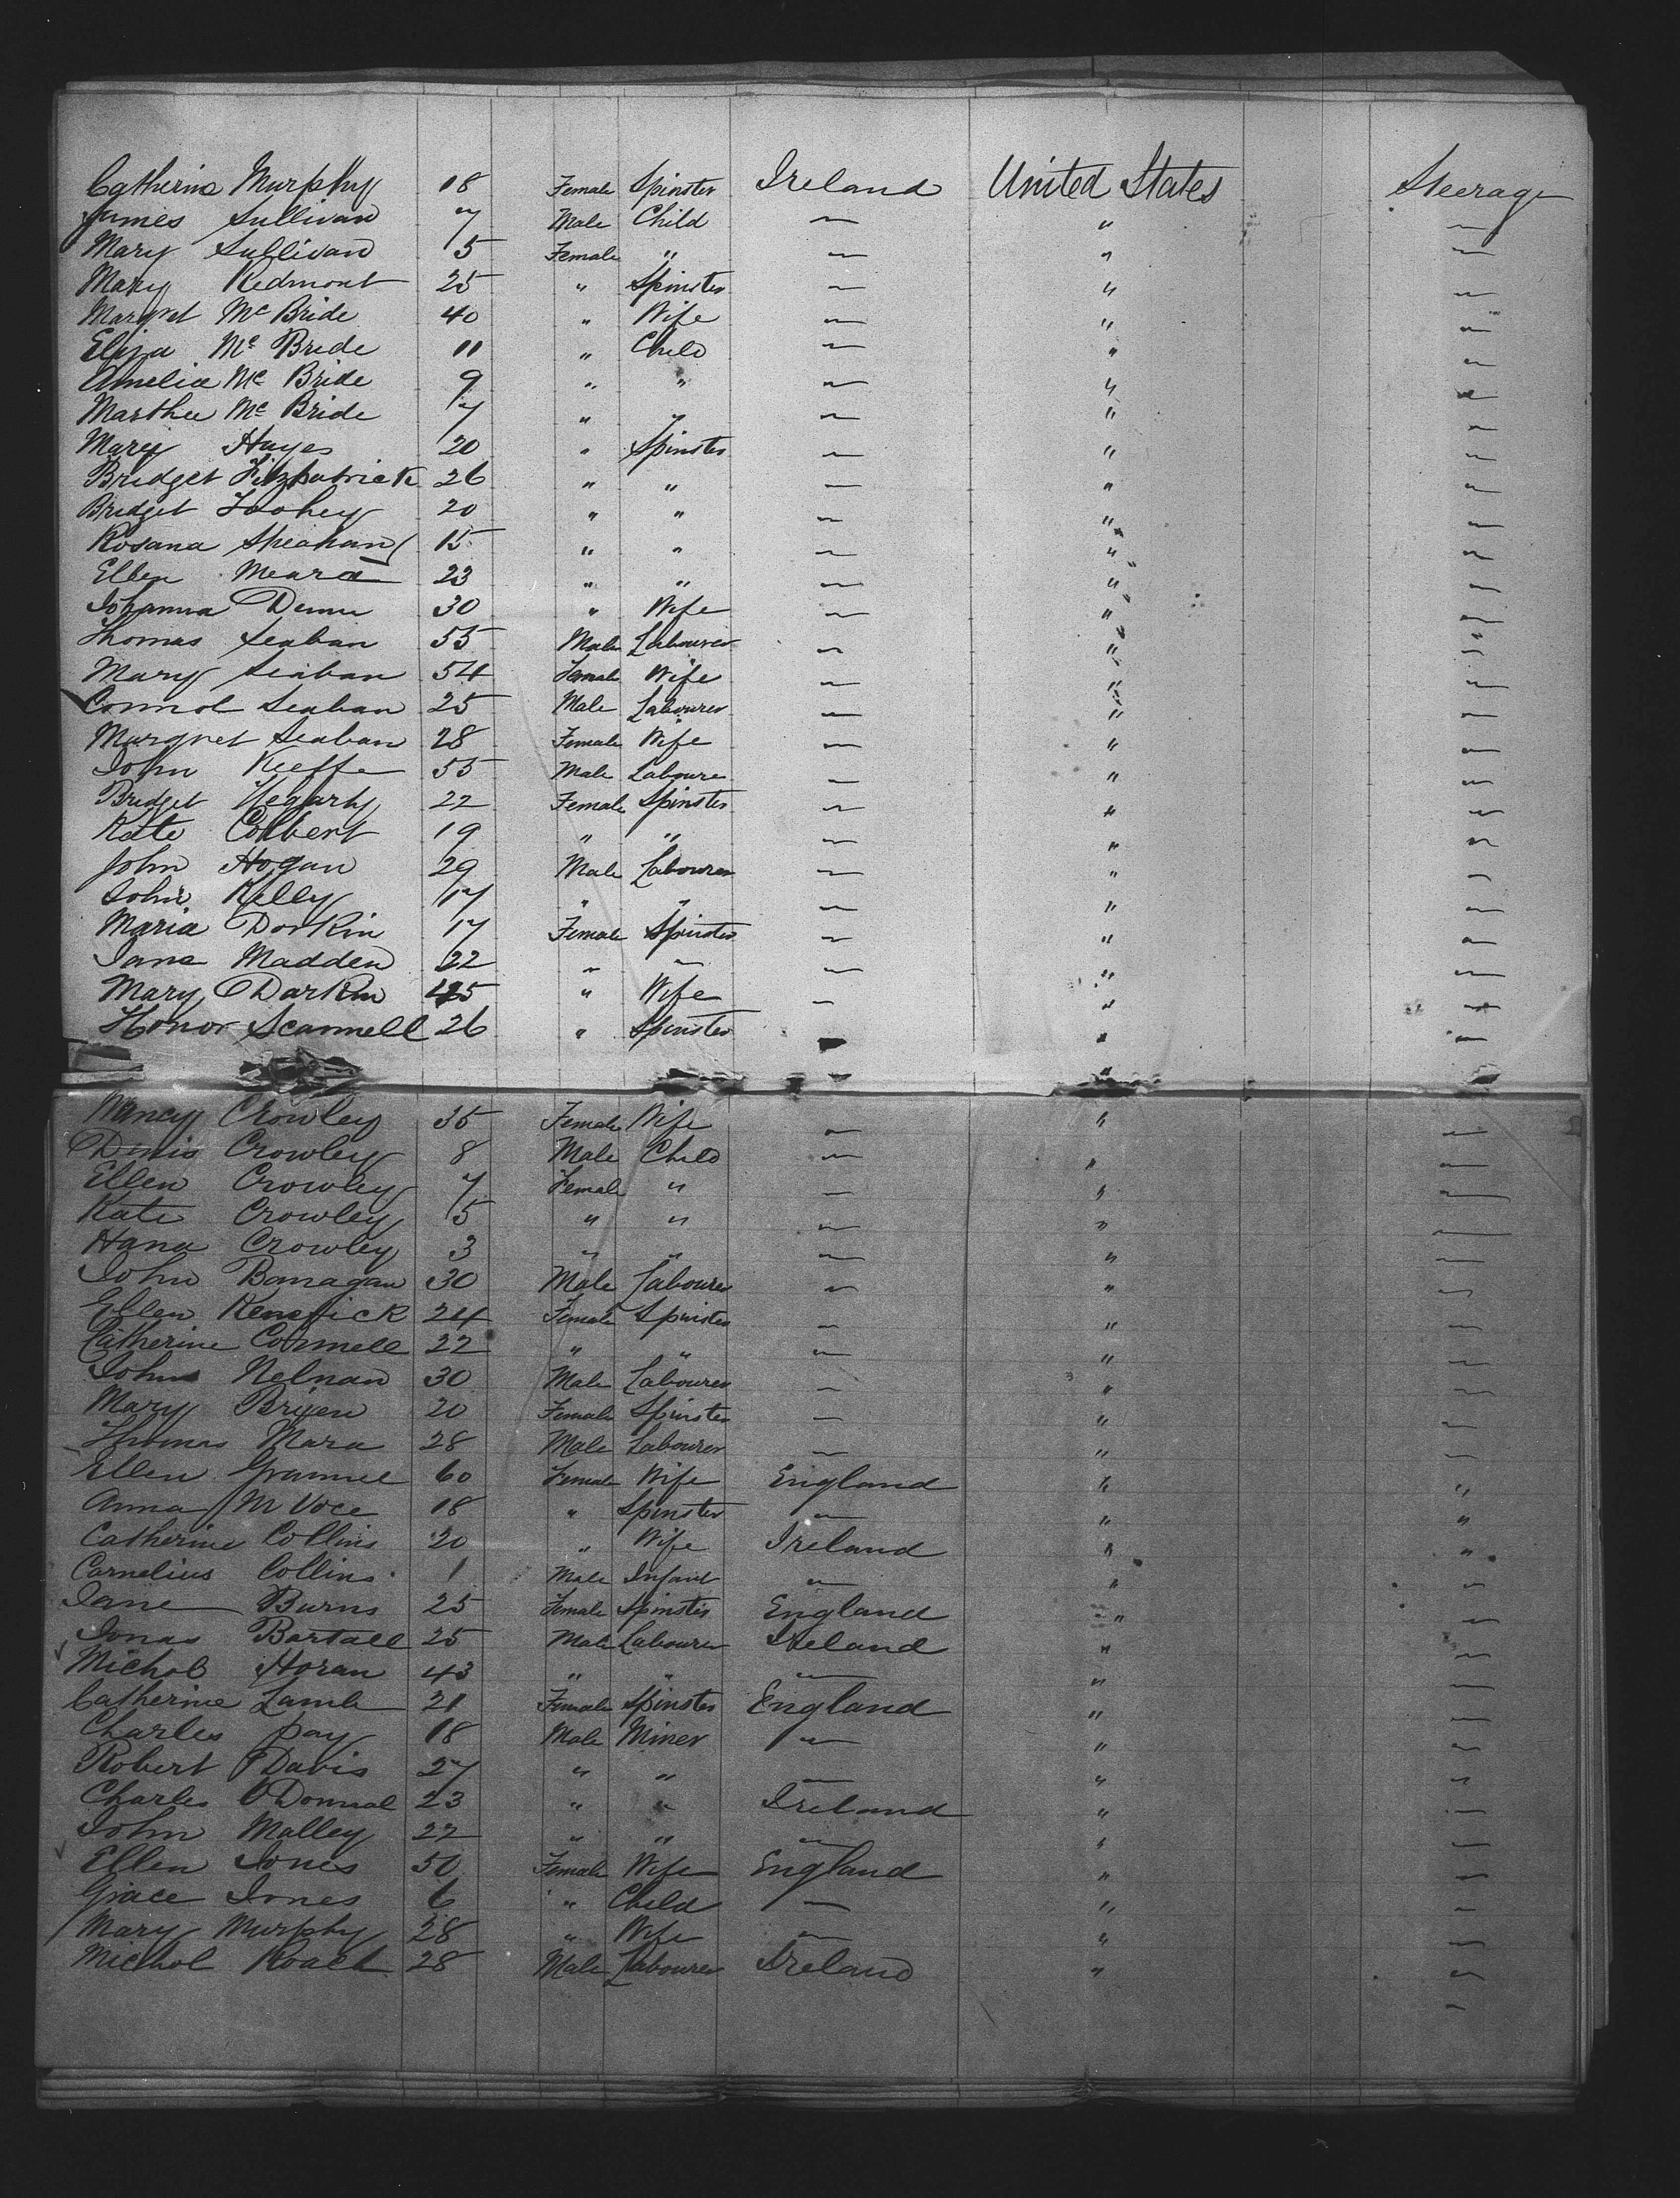 Catherine Murphy 18 Female Spinster Ireland United States Steerage
James Sullivan 7 Male Child — " —
Mary Sullivan 5 Female " — " —
Mary Redmont 25 " Spinster — " —
Margret Mc Bride 40 " Wife — " —
Eliza Mc Bride 11 " Child — " —
Amelia Mc Bride 9 " " — " —
Martha Mc Bride 7 " " — " —
Mary Hayes 20 " Spinster — " —
Bridget Fitzpatrick 26 " " — " —
Bridget Toohey 20 " " — " —
Rosana Sheahan 15 " " — " —
Ellen Meara 23 " " — " —
Johanna Dunn 30 " Wife — " —
Thomas Seaban 55 Male Labourer — " —
Mary Seaban 54 Female Wife — " —
Connol Seaban 25 Male Labourer — " —
Margret Seaban 28 Female Wife — " —
John Keeffe 55 Male Laboure — " —
Bridget Hegarty 22 Female Spinster — " —
Kate Colbert 19 " " — " —
John Hogan 29 Male Labourer — " —
John Kelly 17 " " — " —
Maria Dorkin 17 Female Spinster — " —
Jane Madden 22 " — — " —
Mary Darkin 45 " Wife — " —
Honor Scannell 26 " Spinster — " —
— "
Nancy Crowley 35 Female Wife — " —
Dinis Crowley 8 Male Child — " —
Ellen Crowley 7 Female " — " —
Kate Crowley 5 " " — " —
Hana Crowley 3 " " — " —
John Banagan 30 Male Labourer — " —
Ellen Keneffick 24 Female Spinster — " —
Catherine Connell 22 " " — " —
John Nelnan 30 Male Labourer — " —
Mary Brijen 20 Female Spinster — " —
Thomas Mara 28 Male Labourer — " —
Ellen 60 Female Wife England " "
Anna 18 " Spinster — " "
Catherine Collins 20 " Wife Ireland " "
Cornelius Collins 1 Male Infant — " —
Jane Burns 25 Female Spinster England " —
Jonas Bartall 25 Male Labourer Ireland " —
Michol Horan 43 " " — " —
Catherine Lamb 21 Female Spinster England " —
Charles pay 18 Male Miner — " —
Robert Davis 27 " " — " —
Charles ODonnal 23 " " Ireland " —
John Malley 22 " " — " —
Ellen Jones 50 Female Wife England " —
Grace Jones 6 " Child — " —
Mary Murphy 28 " Wife — " —
Michol Roach 28 Male Labourer Ireland " —
—